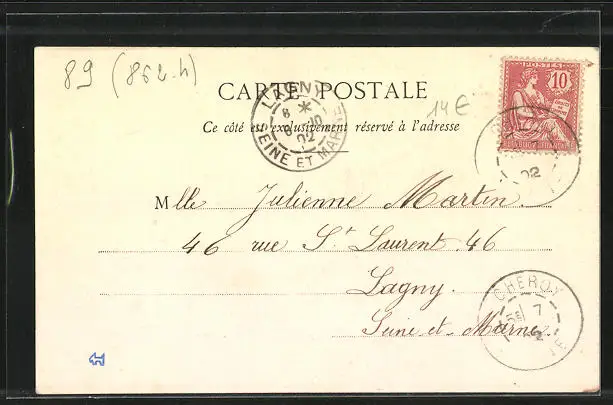 89 (862-h)
CARTE POSTALE
14€
Ce côté est exclusivement réservé à l'adresse
POSTES
10
LAGNY
8
10
02
SEINE ET MARNE
02
Mlle Julienne Martin
46 rue St Laurent. 46
Lagny.
Seine et Marne
CHEROY
7